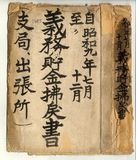 自昭和九年七月
至〃　　十二月
義務貯金拂戻書
支局出張所